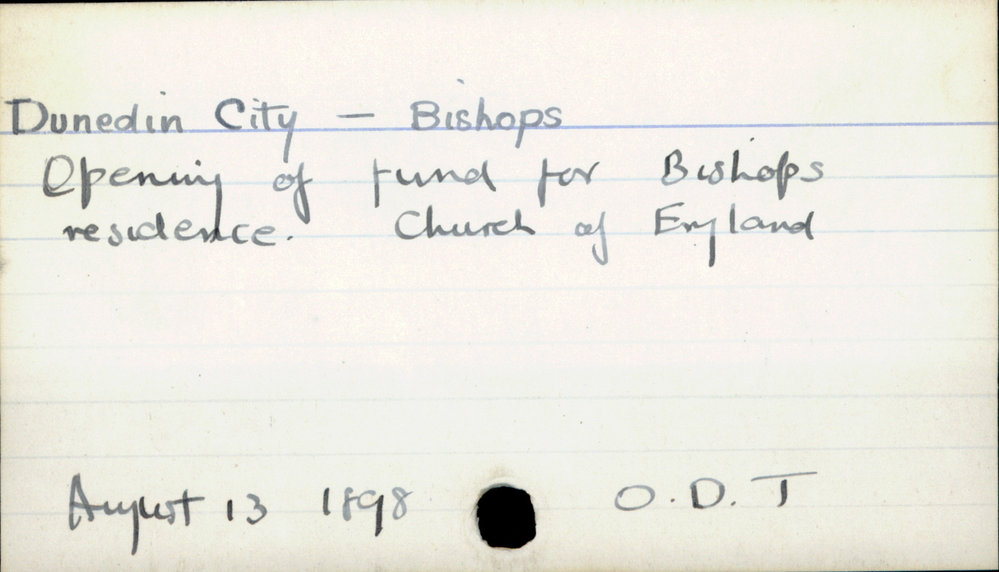 Dunedin City — Bishops
Opening of fund for Bishops
residence. Church of England
August 13 1898 O.D.T